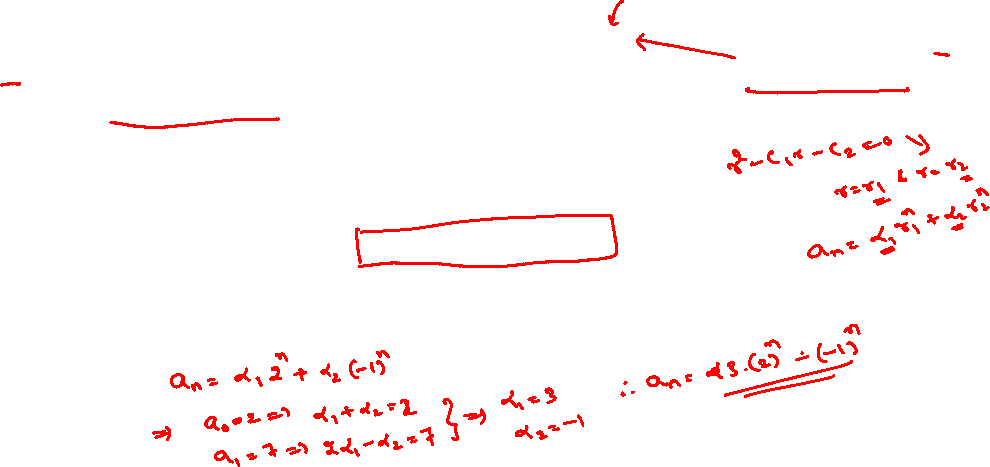 r² - c₁r - c₂ = 0
r = r₁ & r = r₂
aₙ = α₁r₁ⁿ + α₂r₂ⁿ
aₙ = α₁2ⁿ + α₂(-1)ⁿ
⇒ a₀ = 2 ⇒ α₁ + α₂ = 2
a₁ = 7 ⇒ 2α₁ - α₂ = 7 } ⇒ α₁ = 3
α₂ = -1
∴ aₙ = 3·(2)ⁿ - (-1)ⁿ